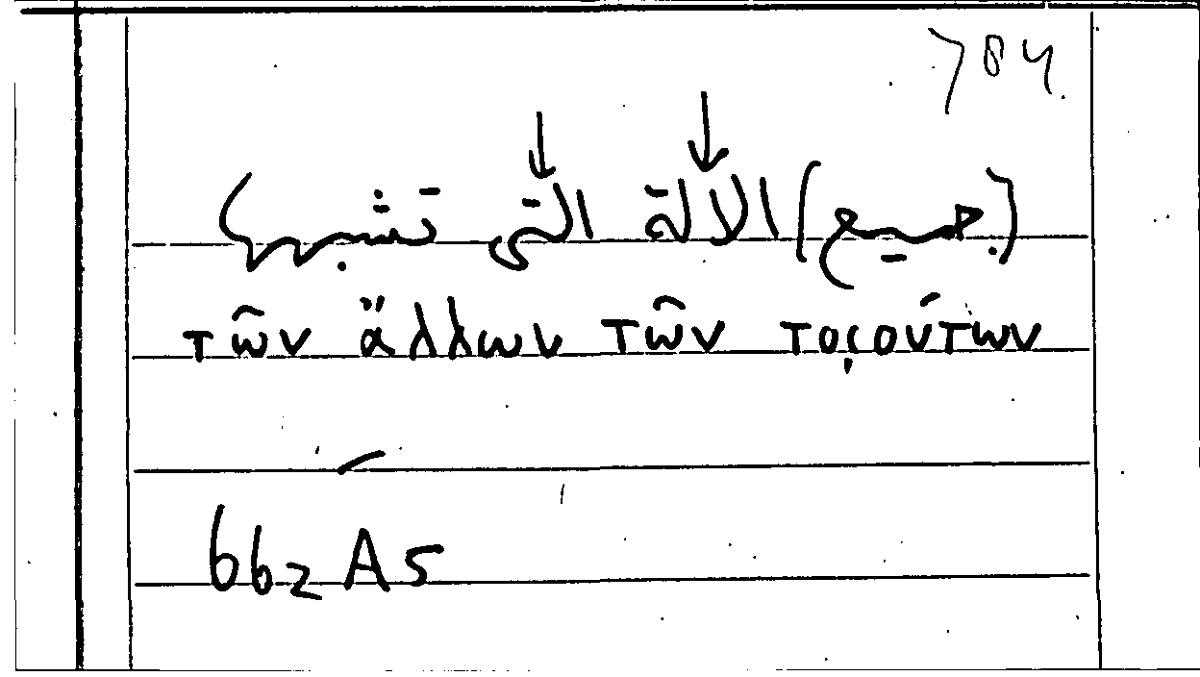 784
(جميع) الالة التى تشبهها
τῶν ἄλλων τῶν τοςούτων
662 A5